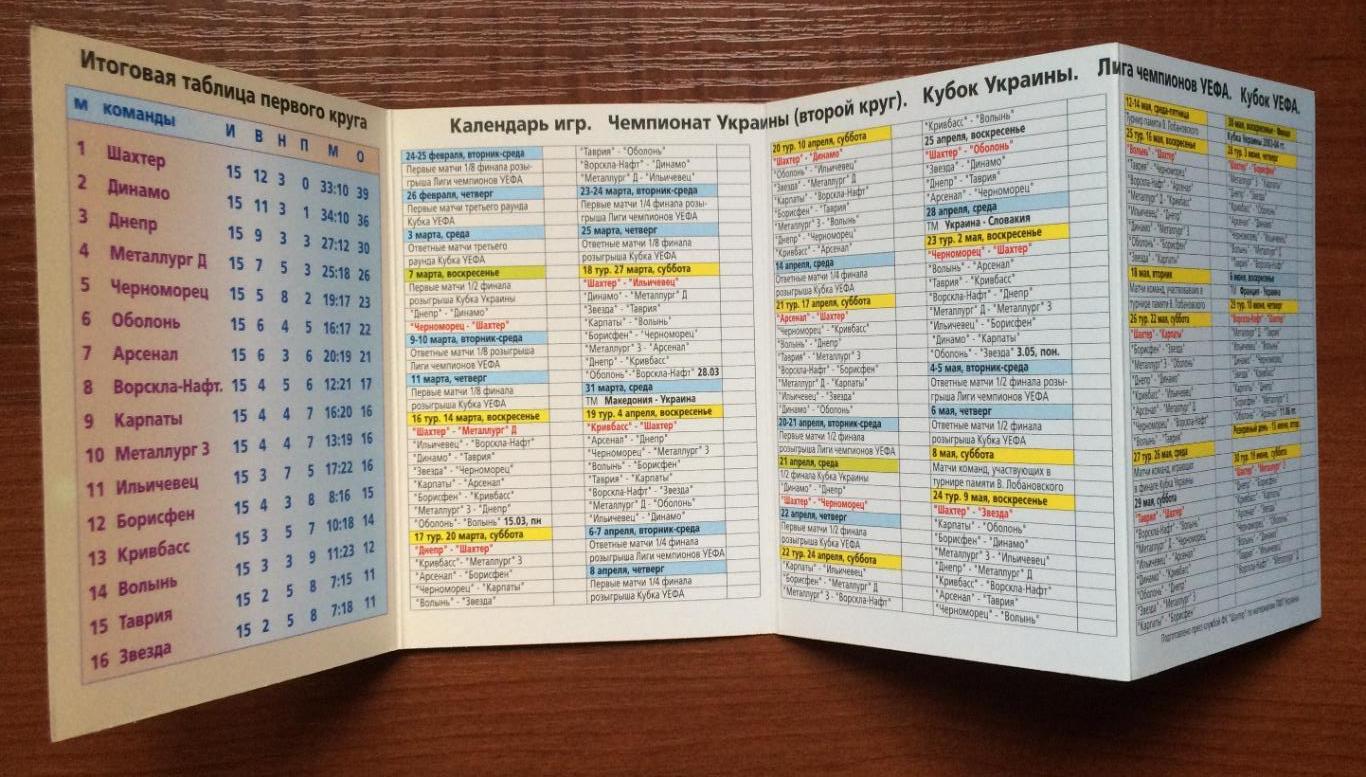 Итоговая таблица первого круга
м команды И В Н П М О
1 Шахтер 15 12 3 0 33:10 39
2 Динамо 15 11 3 1 34:10 36
3 Днепр 15 9 3 3 27:12 30
4 Металлург Д 15 7 5 3 25:18 26
5 Черноморец 15 5 8 2 19:17 23
6 Оболонь 15 6 4 5 16:17 22
7 Арсенал 15 6 3 6 20:19 21
8 Ворскла-Нафт. 15 4 5 6 12:21 17
9 Карпаты 15 4 4 7 16:20 16
10 Металлург З 15 4 4 7 13:19 16
11 Ильичевец 15 3 7 5 17:22 16
12 Борисфен 15 4 3 8 8:16 15
13 Кривбасс 15 3 5 7 10:18 14
14 Волынь 15 3 3 9 11:23 12
15 Таврия 15 2 5 8 7:15 11
16 Звезда 15 2 5 8 7:18 11
Календарь игр. Чемпионат Украины (второй круг). Кубок Украины. Лига чемпионов УЕФА. Кубок УЕФА.
24-25 февраля, вторник-среда
Первые матчи 1/8 финала розы-
грыша Лиги чемпионов УЕФА
26 февраля, четверг
Первые матчи третьего раунда
Кубка УЕФА
3 марта, среда
Ответные матчи третьего
раунда Кубка УЕФА
7 марта, воскресенье
Первые матчи 1/2 финала
розыгрыша Кубка Украины
"Днепр" - "Динамо"
"Черноморец - "Шахтер"
9-10 марта, вторник-среда
Ответные матчи 1/8 розыгрыша
Лиги чемпионов УЕФА
11 марта, четверг
Первые матчи 1/8
розыгрыша Кубка УЕФА
16 тур. 14 марта, воскресенье
"Шахтер" - "Металлург" Д
"Ильичевец" - "Ворскла-Нафт"
"Динамо" - "Таврия"
"Звезда" - "Черноморец"
"Карпаты" - "Арсенал"
"Борисфен" - "Кривбасс"
"Металлург" З - "Днепр"
"Оболонь" - "Волынь" 15.03, пн
17 тур. 20 марта, суббота
"Днепр" - "Шахтер"
"Кривбасс" - "Металлург" З
"Арсенал" - "Борисфен"
"Черноморец" - "Карпаты"
"Волынь" - "Звезда"
"Таврия" - "Оболонь"
"Ворскла-Нафт" - "Динамо"
"Металлург" Д - "Ильичевец"
23-24 марта, вторник-среда
Первые матчи 1/4 финала розы-
грыша Лиги чемпионов УЕФА
25 марта, четверг
Ответные матчи 1/8 финала
розыгрыша Кубка УЕФА
18 тур. 27 марта, суббота
"Шахтер" - "Ильичевец"
"Динамо" - "Металлург" Д
"Звезда" - "Таврия"
"Карпаты" - "Волынь"
"Борисфен" - "Черноморец"
"Металлург" З - "Арсенал"
"Днепр" - "Кривбасс"
"Оболонь"-"Ворскла-Нафт" 28.03
31 марта, среда
ТМ Македония - Украина
19 тур. 4 апреля, воскресенье
"Кривбасс" - "Шахтер"
"Арсенал" - "Днепр"
"Черноморец" - "Металлург" З
"Волынь" - "Борисфен"
"Таврия" - "Карпаты"
"Ворскла-Нафт" - "Звезда"
"Металлург" Д - "Оболонь"
"Ильичевец" - "Динамо"
6-7 апреля, вторник-среда
Ответные матчи 1/4 финала
розыгрыша Лиги чемпионов УЕФА
8 апреля, четверг
Первые матчи 1/4 финала
розыгрыша Кубка УЕФА
20 тур. 10 апреля, суббота
"Шахтер" - "Динамо"
"Оболонь" - "Ильичевец"
"Звезда" - "Металлург" Д
"Карпаты" - "Ворскла-Нафт"
"Борисфен" - "Таврия"
"Металлург" З - "Волынь"
"Днепр" - "Черноморец"
"Кривбасс" - "Арсенал"
14 апреля, среда
Ответные матчи 1/4 финала
розыгрыша Кубка УЕФА
21 тур. 17 апреля, суббота
"Арсенал" - "Шахтер"
"Черноморец" - "Кривбасс"
"Волынь" - "Днепр"
"Таврия" - "Металлург" З
"Ворскла-Нафт" - "Борисфен"
"Металлург" Д - "Карпаты"
"Ильичевец" - "Звезда"
"Динамо" - "Оболонь"
20-21 апреля, вторник-среда
Первые матчи 1/2
розыгрыша Лиги чемпионов УЕФА
21 апреля, среда
1/2 финала Кубка Украины
"Динамо" - "Днепр"
"Шахтер" - "Черноморец"
22 апреля, четверг
Первые матчи 1/2
розыгрыша Кубка УЕФА
22 тур. 24 апреля, суббота
"Карпаты" - "Ильичевец"
"Борисфен" - "Металлург" Д
"Металлург" З - "Ворскла-Нафт"
"Кривбасс" - "Волынь"
25 апреля, воскресенье
"Шахтер" - "Оболонь"
"Звезда" - "Динамо"
"Днепр" - "Таврия"
"Арсенал" - "Черноморец"
28 апреля, среда
ТМ Украина - Словакия
23 тур. 2 мая, воскресенье
"Черноморец" - "Шахтер"
"Волынь" - "Арсенал"
"Таврия" - "Кривбасс"
"Ворскла-Нафт" - "Днепр"
"Металлург" Д - "Металлург" З
"Ильичевец" - "Борисфен"
"Динамо" - "Карпаты"
"Оболонь" - "Звезда" 3.05, пон.
4-5 мая, вторник-среда
Ответные матчи 1/2 финала розы-
грыша Лиги чемпионов УЕФА
6 мая, четверг
Ответные матчи 1/2
розыгрыша Кубка УЕФА
8 мая, суббота
Матчи команд, участвующих в
турнире памяти В. Лобановского
24 тур. 9 мая, воскресенье
"Шахтер" - "Звезда"
"Карпаты" - "Оболонь"
"Борисфен" - "Динамо"
"Металлург" З - "Ильичевец"
"Днепр" - "Металлург" Д
"Кривбасс" - "Ворскла-Нафт"
"Арсенал" - "Таврия"
"Черноморец" - "Волынь"
12-14 мая, среда-пятница
Турнир памяти В. Лобановского
25 тур. 16 мая, воскресенье
"Волынь" - "Шахтер"
"Таврия" - "Черноморец"
"Ворскла-Нафт" - "Арсенал"
"Металлург" Д - "Кривбасс"
"Ильичевец" - "Днепр"
"Динамо" - "Металлург" З
"Оболонь" - "Борисфен"
"Звезда" - "Карпаты"
18 мая, вторник
Матчи команд, участвовавших в
турнире памяти В. Лобановского
26 тур. 22 мая, суббота
"Шахтер" - "Карпаты"
"Борисфен" - "Звезда"
"Металлург" З - "Оболонь"
"Днепр" - "Динамо"
"Кривбасс" - "Ильичевец"
"Арсенал" - "Металлург" Д
"Черноморец" - "Ворскла-Нафт"
"Волынь" - "Таврия"
27 тур. 26 мая, среда
Матчи команд, играющих
в финале Кубка Украины
29 мая, суббота
"Таврия" - "Шахтер"
"Ворскла-Нафт" - "Волынь"
"Металлург" Д - "Черноморец"
"Ильичевец" - "Арсенал"
"Динамо" - "Кривбасс"
"Оболонь" - "Днепр"
"Звезда" - "Металлург" З
"Карпаты" - "Борисфен"
30 мая, воскресенье - Финал
Кубка Украины 2003-04 гг.
28 тур. 3 июня, четверг
"Шахтер" - "Борисфен"
"Металлург" З - "Карпаты"
6 июня, воскресенье
ТМ Франция - Украина
29 тур. 10 июня, четверг
"Ворскла-Нафт" - "Шахтер"
"Металлург" Д - "Таврия"
"Ильичевец" - "Волынь"
"Динамо" - "Черноморец"
Резервный день - 15 июня, втор.
30 тур. 19 июня, суббота
"Шахтер" - "Металлург" З
Подготовлено пресс-службой ФК "Шахтер" по материалам ПФЛ Украины